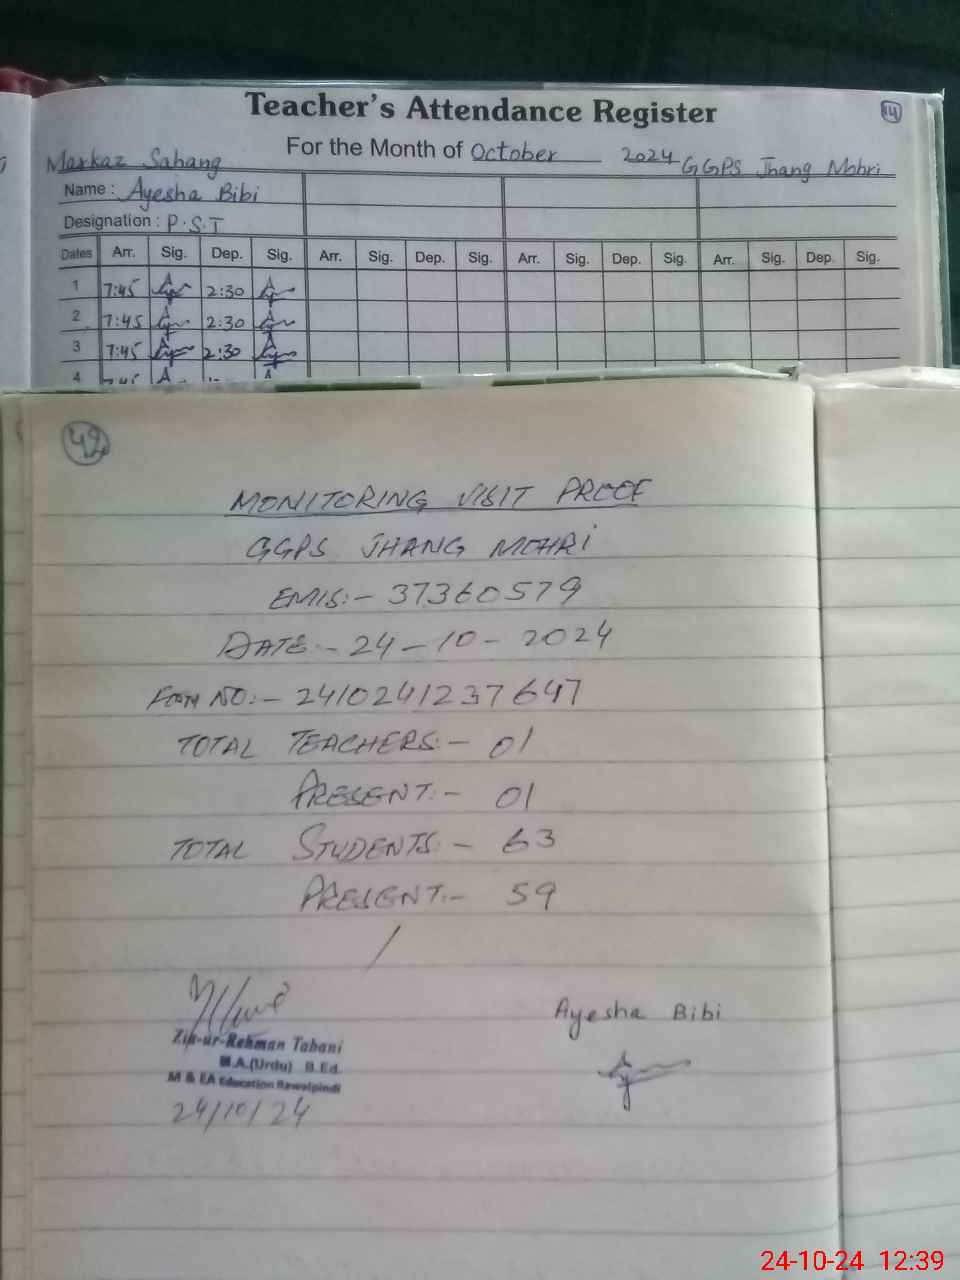 Teacher's Attendance Register
14
For the Month of October 2024
Markaz Sahang
GGPS Jhang Mohri
Name : Ayesha Bibi
Designation : P.S.T
Dates Arr. Sig. Dep. Sig. Arr. Sig. Dep. Sig. Arr. Sig. Dep. Sig. Arr. Sig. Dep. Sig.
1 7:45 2:30
2 7:45 2:30
3 7:45 2:30
4 7:45
42
MONITORING VISIT PROOF
GGPS JHANG MOHRi
EMIS:- 37360579
DATE:- 24-10-2024
FORM NO:- 2410241237647
TOTAL TEACHERS:- 01
PRESENT:- 01
TOTAL STUDENTS:- 63
PRESENT:- 59
Zia-ur-Rehman Tabani
M.A.(Urdu) B.Ed.
M & EA Education Rawalpindi
24/10/24
Ayesha Bibi
24-10-24 12:39